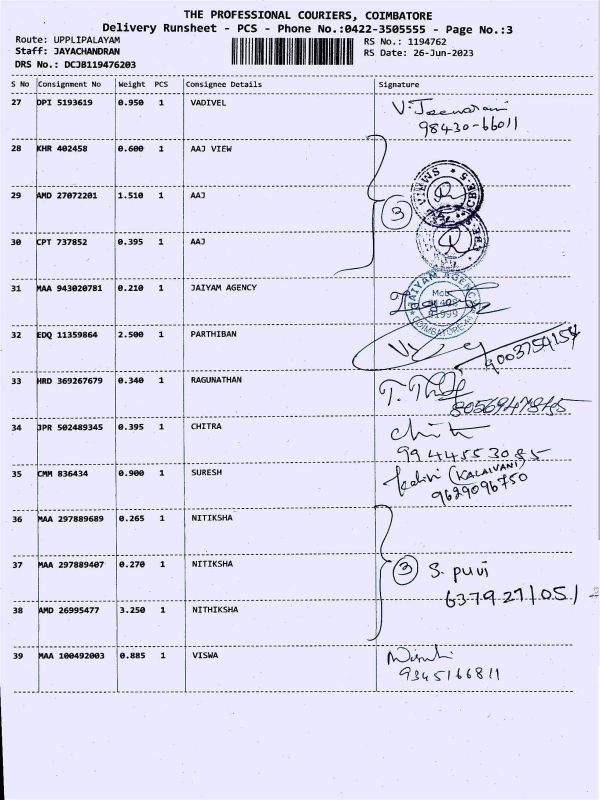 THE PROFESSIONAL COURIERS, COIMBATORE
Delivery Runsheet - PCS - Phone No.:0422-3505555 - Page No.:3
Route: UPPLIPALAYAM RS No.: 1194762
Staff: JAYACHANDRAN RS Date: 26-Jun-2023
DRS No.: DCJB119476203
S No Consignment No Weight PCS Consignee Details Signature
27 DPI 5193619 0.950 1 VADIVEL
98430-66011
28 KHR 402458 0.600 1 AAJ VIEW
29 AMD 27072201 1.510 1 AAJ 3
30 CPT 737852 0.395 1 AAJ
31 MAA 943020781 0.210 1 JAIYAM AGENCY JAIYAM AGENCY
COIMBATORE
32 EDQ 11359864 2.500 1 PARTHIBAN
33 HRD 369267679 0.340 1 RAGUNATHAN
34 JPR 502489345 0.395 1 CHITRA
9944553085
35 CMM 836434 0.900 1 SURESH (KALAIVANI)
9629096750
36 MAA 297889689 0.265 1 NITIKSHA
37 MAA 297889407 0.270 1 NITIKSHA 3 S. puvi
38 AMD 26995477 3.250 1 NITHIKSHA
39 MAA 100492003 0.885 1 VISWA
9345166811